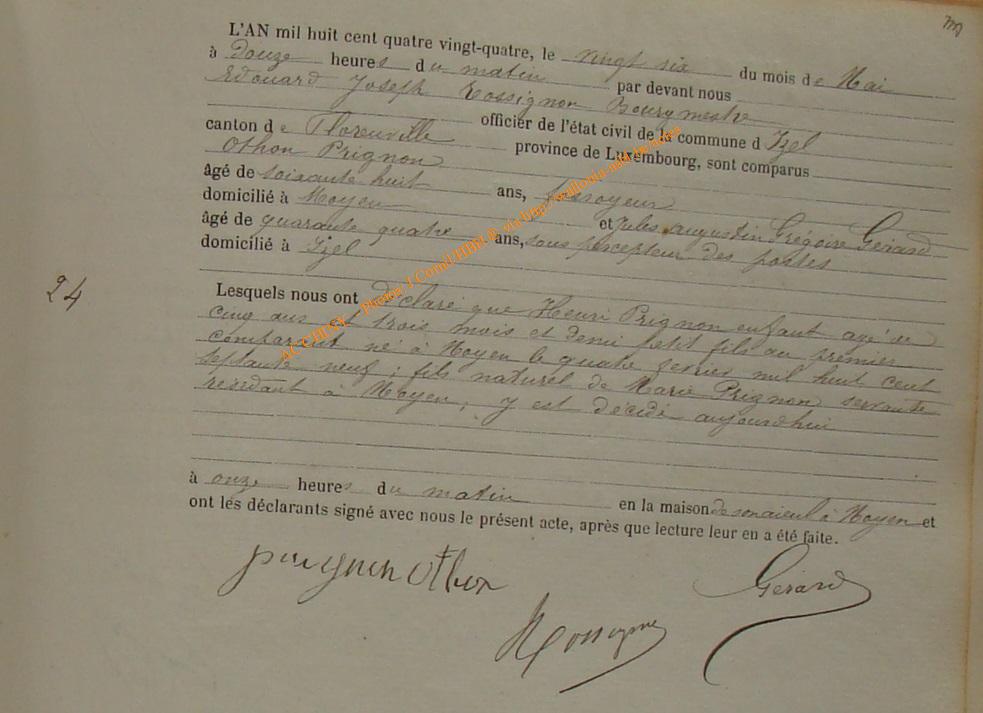 L'AN mil huit cent quatre vingt-quatre, le vingt six du mois de Mai
à douze heures du matin par devant nous
Edouard Joseph Rossignon Bourgmestre
officier de l'état civil de la commune d Izel
canton de Florenville province de Luxembourg, sont comparus
Othon Prignon
âgé de soixante huit ans,
domicilié à Moyen et Jules augustin Grégoire Gérard
âgé de quarante quatre ans, sous percepteur des postes
domicilié à Izel
24
Lesquels nous ont déclaré que Henri Prignon enfant agé de
cinq ans et trois mois et demi petit fils au premier
comparant né à Moyen le quatre fevrier mil huit cent
septante neuf; fils naturel de Marie Prignon servante
résidant à Moyen, y est décédé aujourdhui
à onze heures du matin en la maison de son aieul à Moyen et
ont les déclarants signé avec nous le présent acte, après que lecture leur en a été faite.
prignon Othon
Gérard
Rossignon